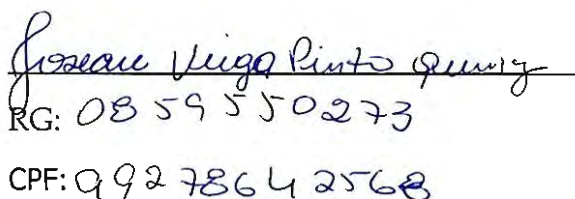 Joseane Veiga Pinto Queiroz
RG: 0859550273
CPF: 99278642568